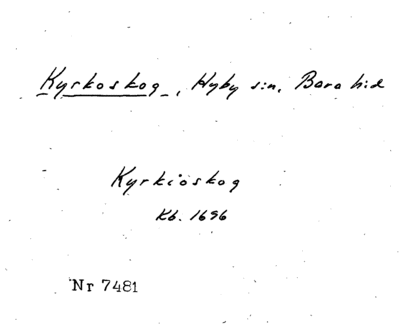 Kyrkoskog, Hyby sn, Bara hd
Kyrkiöskog
Kb. 1696
Nr 7481